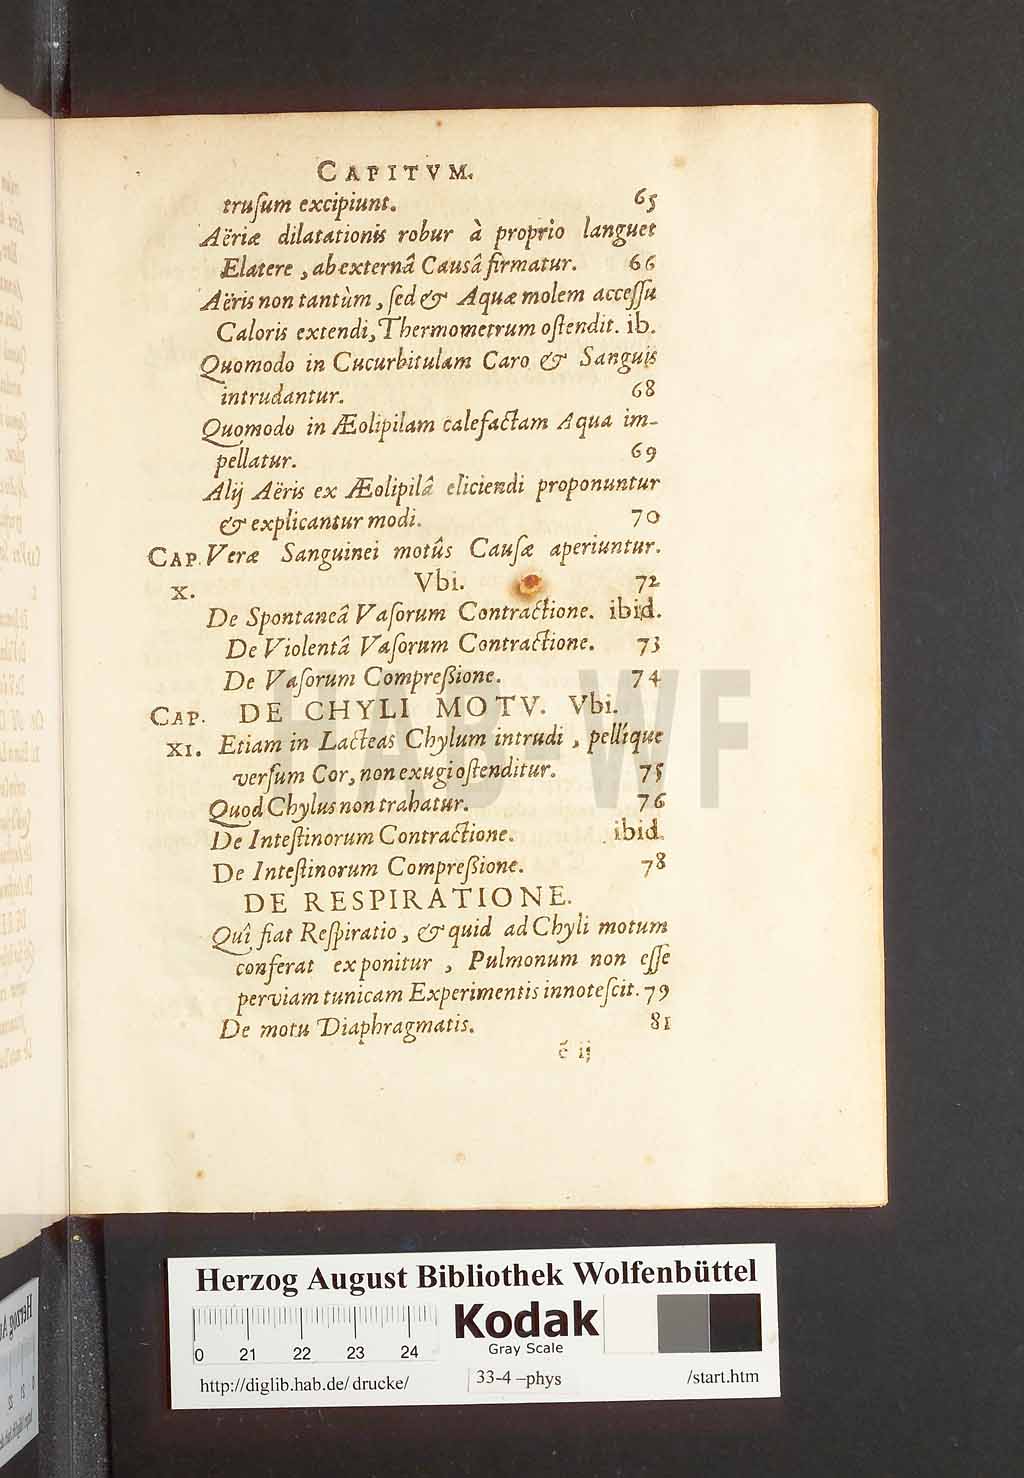 CAPITVM.
truſum excipiunt. 65
Aëriæ dilatationis robur à proprio languet
Elatere, ab externâ Causâ firmatur. 66
Aëris non tantùm, ſed & Aquæ molem acceſſu
Caloris extendi, Thermometrum oſtendit. ib.
Quomodo in Cucurbitulam Caro & Sanguis
intrudantur. 68
Quomodo in Æolipilam calefactam Aqua im-
pellatur. 69
Alij Aëris ex Æolipilâ eliciendi proponuntur
& explicantur modi. 70
CAP. Veræ Sanguinei motûs Cauſæ aperiuntur.
X. Vbi. 72
De Spontaneâ Vaſorum Contractione. ibid.
De Violentâ Vaſorum Contractione. 73
De Vaſorum Compreßione. 74
CAP. DE CHYLI MOTV. Vbi.
XI. Etiam in Lacteas Chylum intrudi, pellíque
verſum Cor, non exugi oſtenditur. 75
Quod Chylus non trahatur. 76
De Inteſtinorum Contractione. ibid.
De Inteſtinorum Compreßione. 78
DE RESPIRATIONE.
Quî fiat Reſpiratio, & quid ad Chyli motum
conferat exponitur, Pulmonum non eſſe
perviam tunicam Experimentis innoteſcit. 79
De motu Diaphragmatis. 81
ē ij
HAB-WF
Herzog August Bibliothek Wolfenbüttel
Kodak
Gray Scale
0 21 22 23 24
http://diglib.hab.de/drucke/ 33-4-phys /start.htm